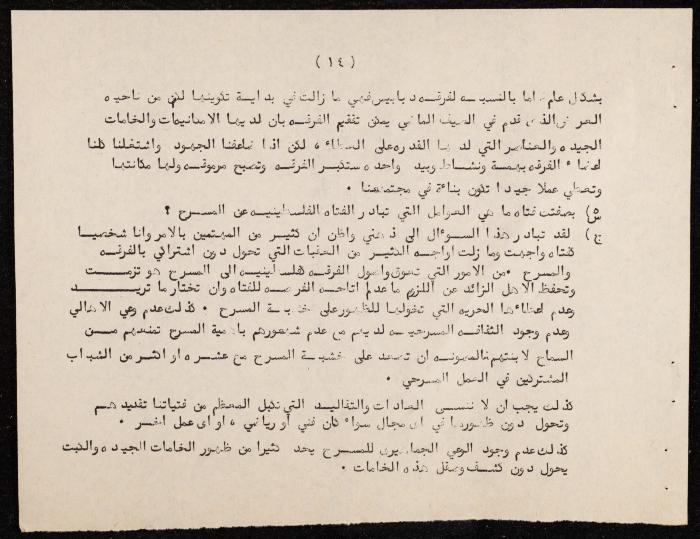 ( ١٤ )
بشكل عام ، اما بالنسبه لفرقه دبابيس فهي ما زالت في بداية تكوينها لكن من ناحيه
العرض الذي قدم في الصيف الماضي يمكن تقييم الفرقه بان لديها الامكانيات والخامات
الجيده والعناصر التي لديها القدره على العطاء ، لكن اذا ضاعفنا الجهود واشتغلنا كلنا
اعضاء الفرقه بهمة ونشاط وبيد واحده ستكبر الفرقه وتصبح مرموقه ولها مكانتها
وتعطي عملا جيدا تكون بناءة في مجتمعنا .
س) بصفتك فتاه ما هي العوامل التي تبادر الفتاه الفلسطينيه عن المسرح ؟
ج) لقد تبادر هذا السوءال الى ذهني واظن ان كثير من المهتمين بالامر وانا شخصيا
كفتاه واجهت وما زلت اواجه الكثير من العقبات التي تحول دون اشتراكي بالفرقه
والمسرح . من الامور التي تعوق وصول الفرقه فلسطينيه الى المسرح هو تزمت
وتحفظ الاهل الزائد عن اللزوم ما عدم اتاحه الفرصه للفتاه وان تختار ما تريد
وعدم اعطاءها الحريه التي تخولها للظهور على خشبة المسرح . كذلك عدم وعي الاهالي
وعدم وجود الثقافه المسرحيه لديهم من عدم شعورهم باهمية المسرح تمنعهم من
السماح لابنتهم فالصعوبه ان تصعد على خشبة المسرح مع عشره او اكثر من الشباب
المشتركين في العمل المسرحي .
كذلك يجب ان لا ننسى العادات والتقاليد التي تكبل المعظم من فتياتنا تقيدهم
وتحول دون ظهورها في اى مجال سواء كان فني او رياضي ، او اى عمل اخر .
كذلك عدم وجود الوعي الجماهيرى للمسرح يحد كثيرا من ظهور الخامات الجيده والكبت
يحول دون كشف وصقل هذه الخامات .